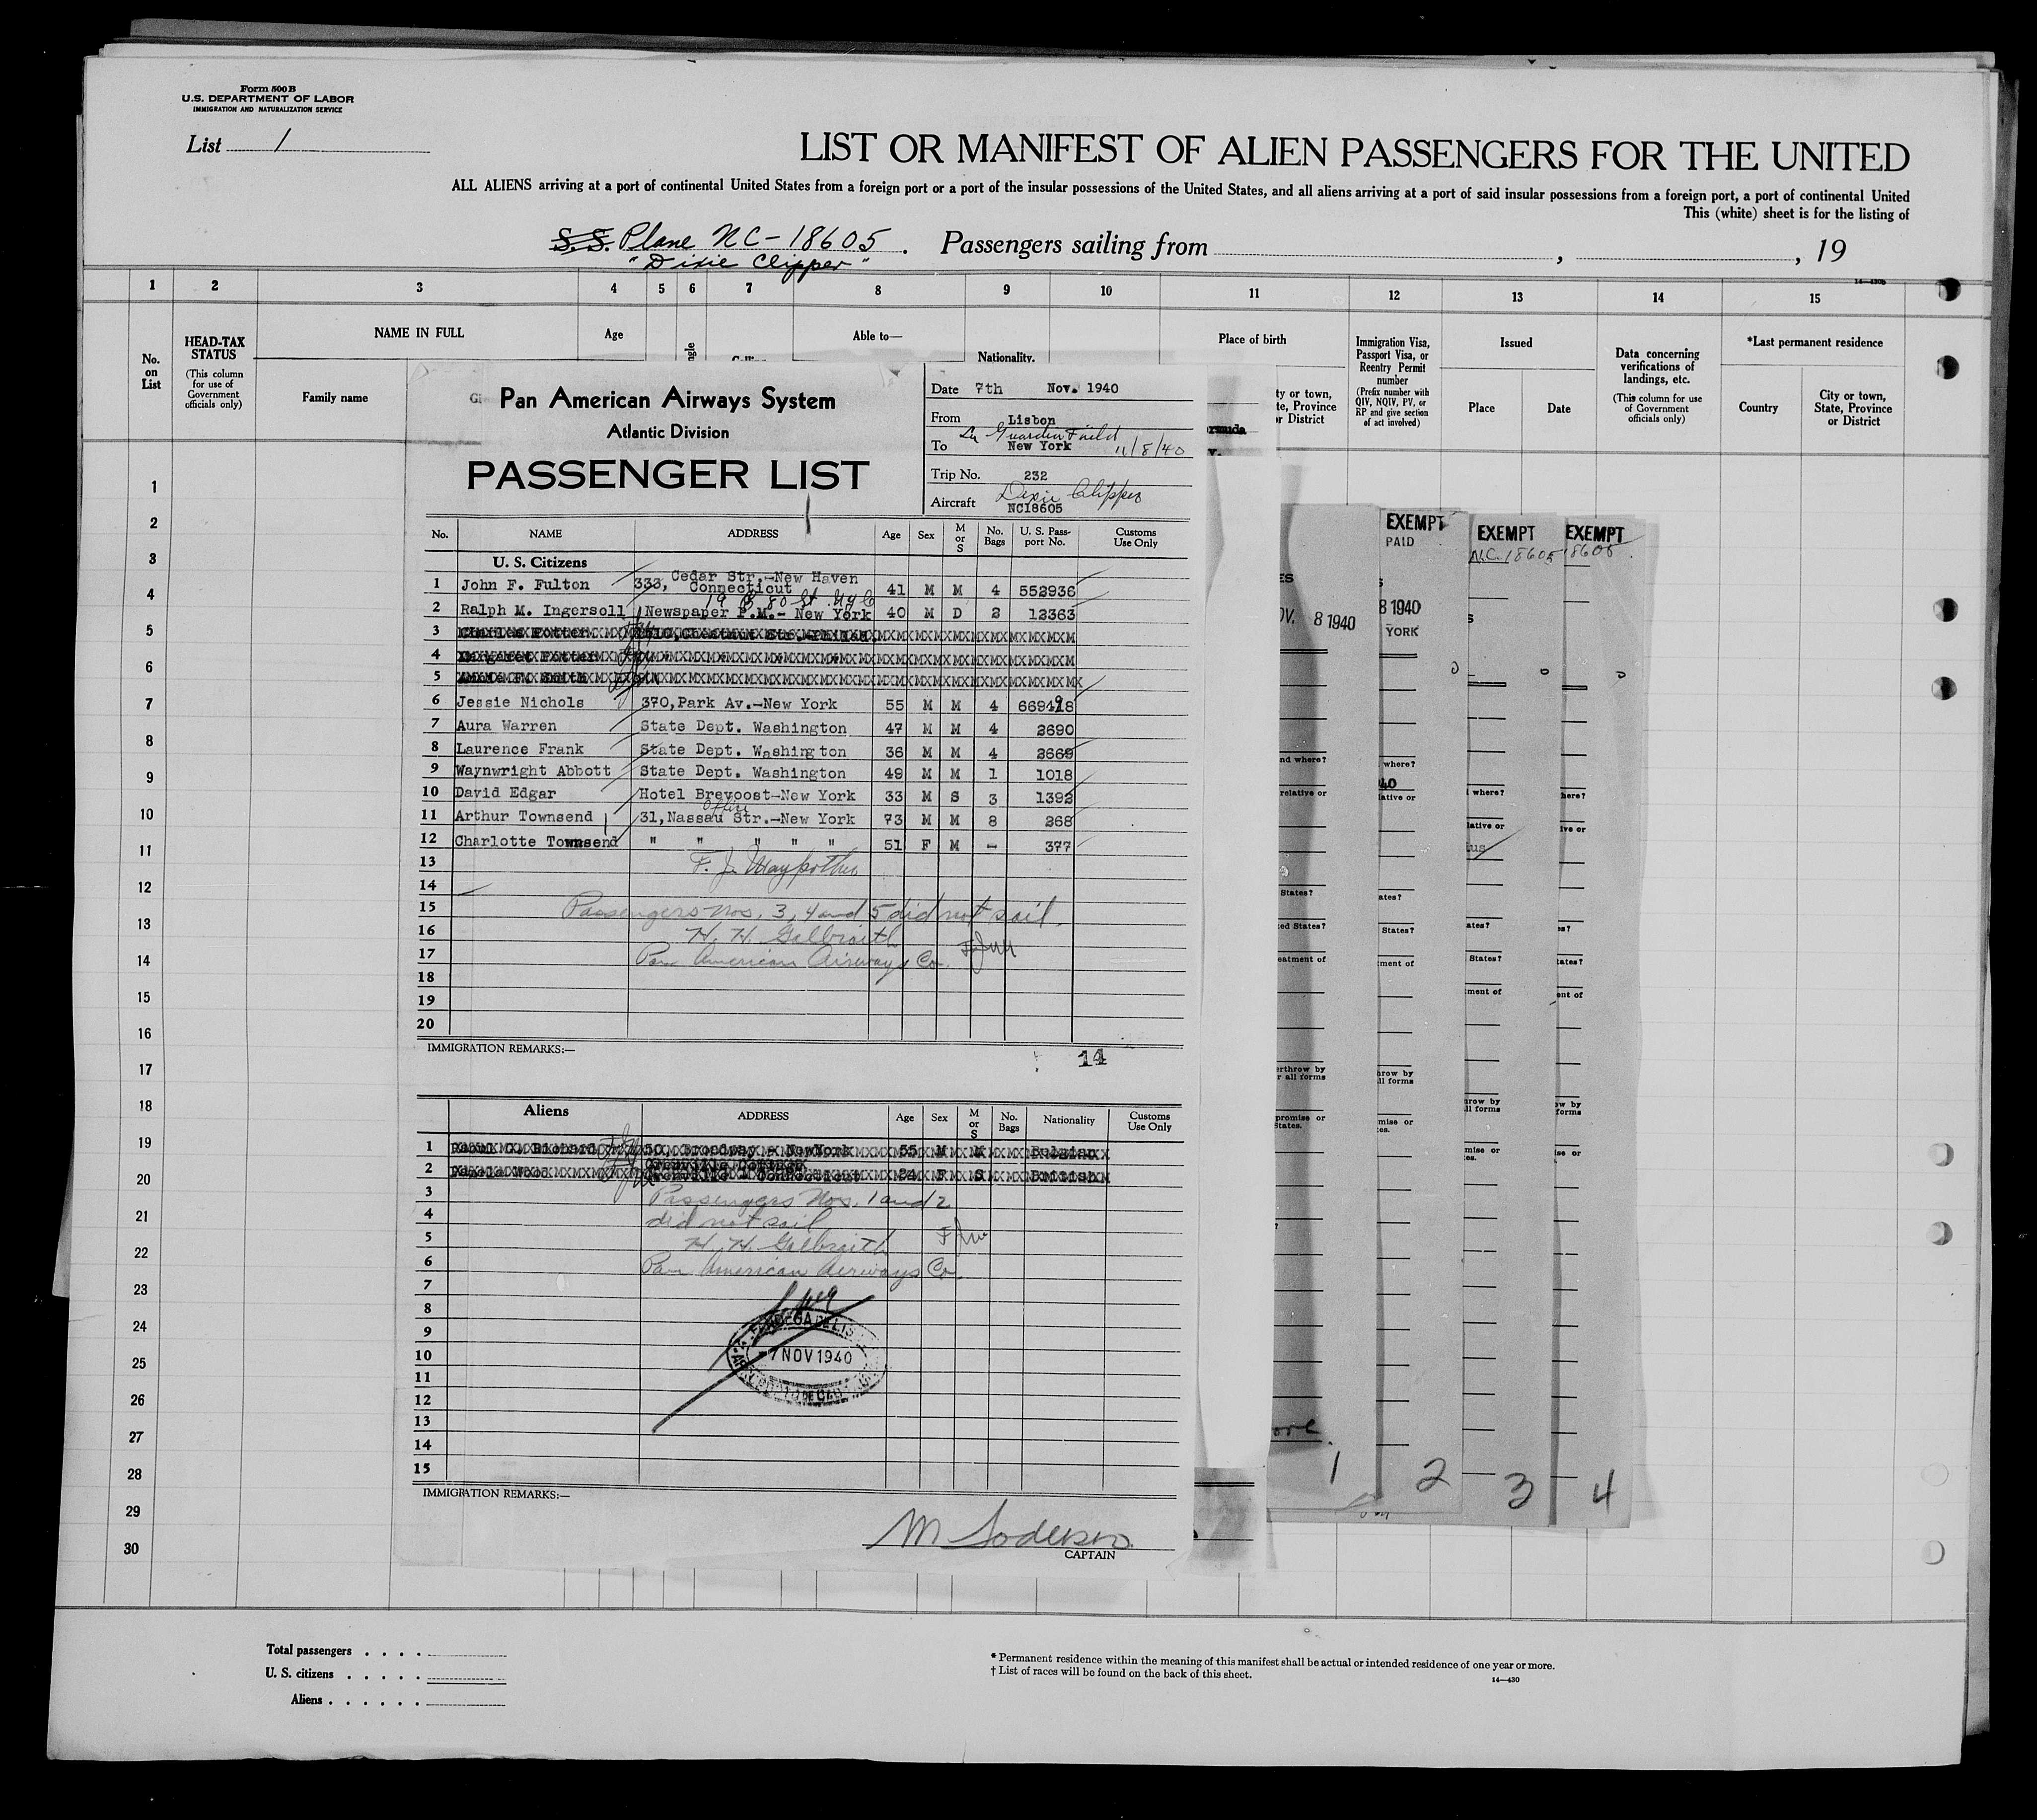 Form 500 B
U.S. DEPARTMENT OF LABOR
IMMIGRATION AND NATURALIZATION SERVICE
List 1
LIST OR MANIFEST OF ALIEN PASSENGERS FOR THE UNITED
ALL ALIENS arriving at a port of continental United States from a foreign port or a port of the insular possessions of the United States, and all aliens arriving at a port of said insular possessions from a foreign port, a port of continental United
This (white) sheet is for the listing of
S.S. Plane NC-18605. Passengers sailing from , , 19
"Dixie Clipper"
14-430b
1 2 3 4 5 6 7 8 9 10 11 12 13 14 15
No. on List
HEAD-TAX STATUS
(This column for use of Government officials only)
NAME IN FULL
Family name
Age
Able to—
Nationality.
Place of birth
ty or town,
te, Province
r District
Immigration Visa, Passport Visa, or Reentry Permit number
(Prefix number with QIV, NQIV, PV, or RP and give section of act involved)
Issued
Place
Date
Data concerning verifications of landings, etc.
(This column for use of Government officials only)
*Last permanent residence
Country
City or town, State, Province or District
Pan American Airways System
Atlantic Division
PASSENGER LIST
Date 7th Nov. 1940
From Lisbon
La Guardia Field
To New York 11/8/40
Trip No. 232
Dixie Clipper
Aircraft NC18605
No. NAME ADDRESS Age Sex M or S No. Bags U. S. Pass- port No. Customs Use Only
U. S. Citizens
1 John F. Fulton 333, Cedar Str.-New Haven Connecticut 41 M M 4 552936
19 E 80 St NYC
2 Ralph M. Ingersoll Newspaper P.M.- New York 40 M D 2 12363
3 Charles Potter
4 Margaret Potter
5
6 Jessie Nichols 370,Park Av.-New York 55 M M 4
7 Aura Warren State Dept. Washington 47 M M 4 2690
8 Laurence Frank State Dept. Washington 36 M M 4 2669
9 Waynwright Abbott State Dept. Washington 49 M M 1 1018
10 David Edgar Hotel Brevoost-New York 33 M S 3 1392
Office
11 Arthur Townsend 31,Nassau Str.-New York 73 M M 8 268
12 Charlotte Townsend " " " " " 51 F M - 377
13
14
15 Passengers nos. 3, 4 and 5 did not sail.
16 H. H. Galbraith
17 Pan American Airways Co. FJM
18
19
20
IMMIGRATION REMARKS:—
14
Aliens ADDRESS Age Sex M or S No. Bags Nationality Customs Use Only
1 50, Broadway - NewYork 55 M M Belgian
2 Wood Connecticut 24 F S British
3 Passengers Nos. 1 and 2
4 did not sail
5 H. H. Galbraith FJM
6 Pan American Airways Co.
7
8
9
10 7 NOV 1940
11
12
13
14
15
IMMIGRATION REMARKS:—
CAPTAIN
1
2
3
4
5
6
7
8
9
10
11
12
13
14
15
16
17
18
19
20
21
22
23
24
25
26
27
28
29
30
EXEMPT
PAID
EXEMPT
NC 18605
EXEMPT
18605
OV. 8 1940
8 1940
YORK
nd where?
where?
relative or
lative or
States?
ted States?
eatment of
tment of
erthrow by
r all forms
promise or
States.
1 2 3 4
Total passengers . . . .
U. S. citizens . . . . .
Aliens . . . . . .
* Permanent residence within the meaning of this manifest shall be actual or intended residence of one year or more.
† List of races will be found on the back of this sheet.
14—430